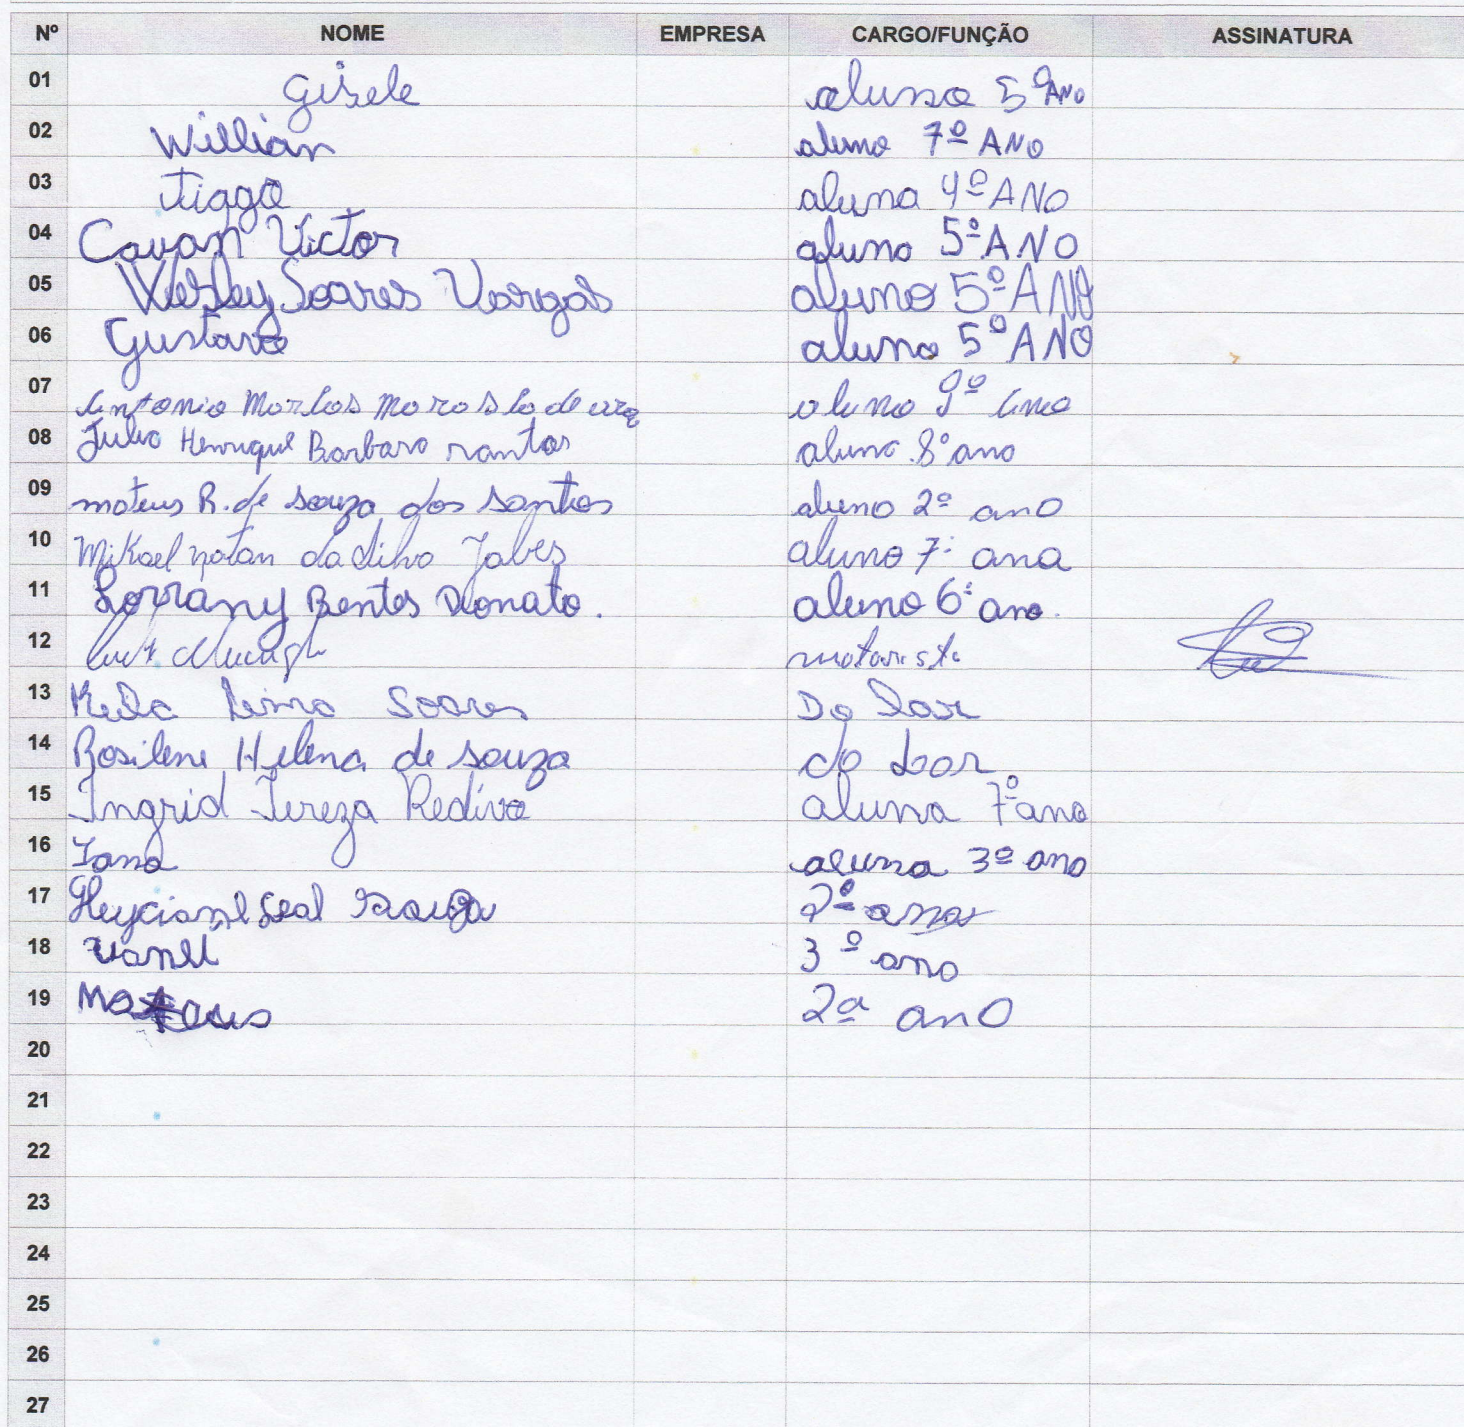 Nº NOME EMPRESA CARGO/FUNÇÃO ASSINATURA
01 Gisele aluna 5º ANO
02 Willian aluno 7º ANO
03 Tiago aluna 4º ANO
04 Cauan Victor aluno 5º ANO
05 Wesley Soares Vargas aluno 5º ANO
06 Gustavo aluno 5º ANO
07 Antonio aluno 9º ano
08 Julio Henrique Barbaro santos aluno 8º ano
09 mateus R. de souza dos santos aluno 2º ano
10 Mikael natan aluno 7º ano
11 Lorrany Bentes Donato. aluno 6º ano.
12 motorista
13 Keila Lima Soares Do Lar
14 Rosilene Helena de souza do Lar
15 Ingrid Tereza Redivo aluna 7º ano
16 aluna 3º ano
17 Gleyciane Leal ano
18 3º ano
19 Mateus 2ª ano
20
21
22
23
24
25
26
27